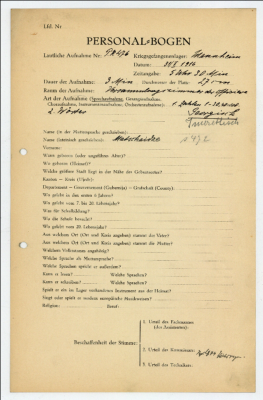 Lfd. Nr.
PERSONAL-BOGEN
Lautliche Aufnahme Nr.: Kriegsgefangenenlager: Mannheim
Datum: 1916
Zeitangabe: 5 Uhr 30 Min
Dauer der Aufnahme: 3 Min Durchmesser der Platte: 27 cm
Raum der Aufnahme: Versammlungszimmer der Offiziere
Art der Aufnahme (Sprechaufnahme, Gesangsaufnahme,
Choraufnahme, Instrumentenaufnahme, Orchesteraufnahme): 1. Zahlen
2. Wörter Georgisch
Name (in der Muttersprache geschrieben):
Name (lateinisch geschrieben):
Vorname:
Wann geboren (oder ungefähres Alter)?
Wo geboren (Heimat)?
Welche größere Stadt liegt in der Nähe des Geburtsortes?
Kanton — Kreis (Ujedz):
Departement — Gouvernement (Gubernija) — Grafschaft (County):
Wo gelebt in den ersten 6 Jahren?
Wo gelebt vom 7. bis 20. Lebensjahr?
Was für Schulbildung?
Wo die Schule besucht?
Wo gelebt vom 20. Lebensjahr?
Aus welchem Ort (Ort und Kreis angeben) stammt der Vater?
Aus welchem Ort (Ort und Kreis angeben) stammt die Mutter?
Welchem Volksstamm angehörig?
Welche Sprache als Muttersprache?
Welche Sprachen spricht er außerdem?
Kann er lesen? Welche Sprachen?
Kann er schreiben? Welche Sprachen?
Spielt er ein im Lager vorhandenes Instrument aus der Heimat?
Singt oder spielt er modern europäische Musikweisen?
Religion: Beruf:
1. Urteil des Fachmannes
(des Assistenten):
Beschaffenheit der Stimme:
2. Urteil des Kommissars:
3. Urteil des Technikers: